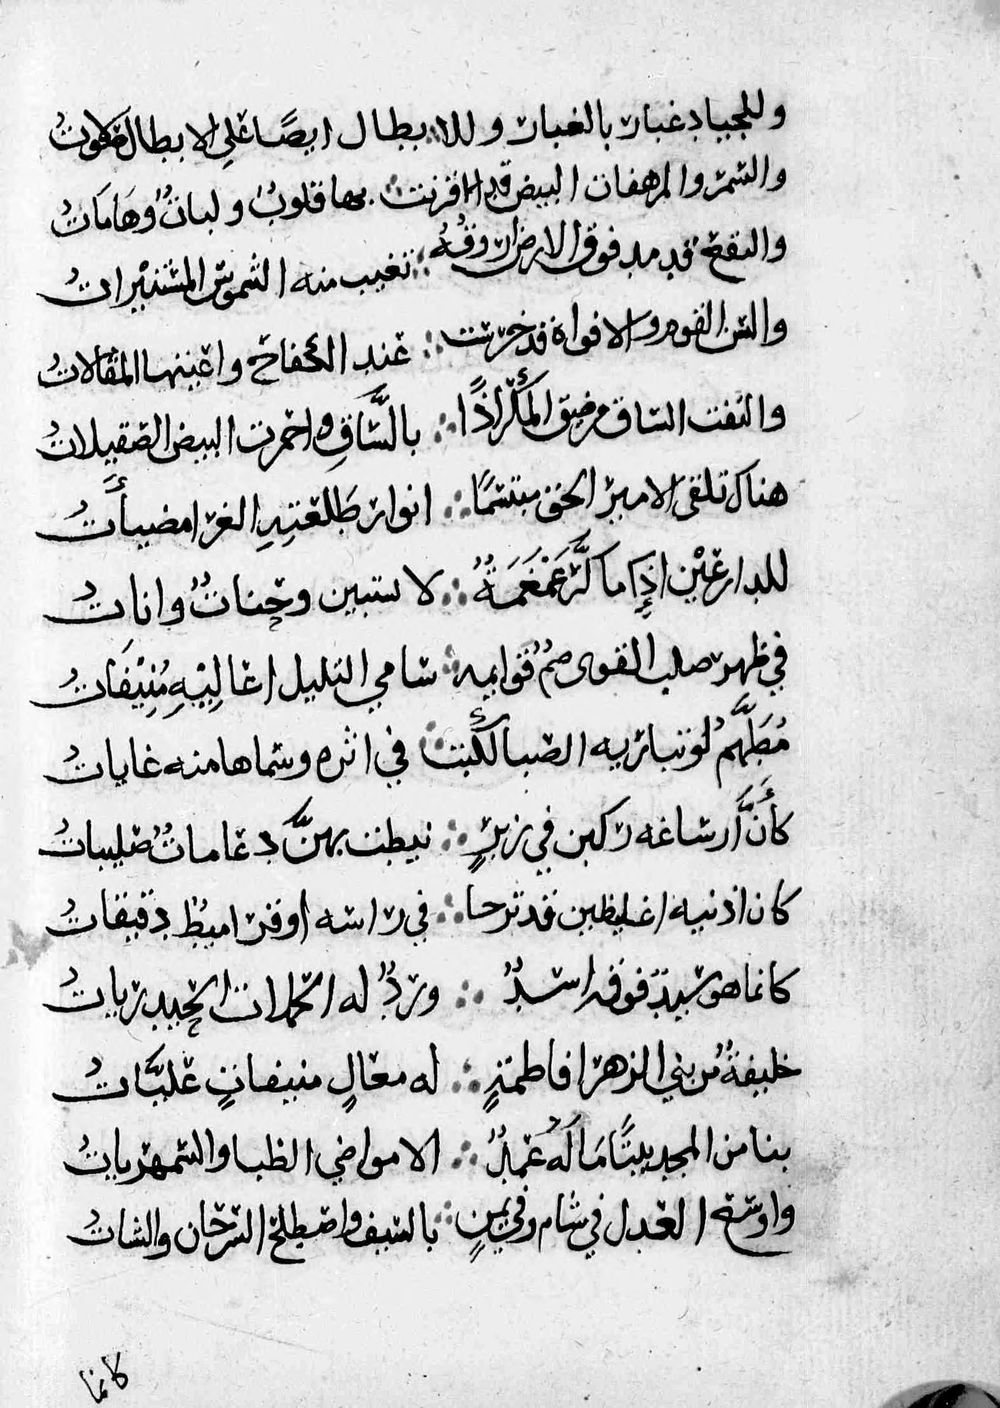 وللجياد غبار بالغبار وللا ∴ بطال ايضًا على الابطال كلوتُ
والسمر والمرهفات البيض قد اقترنت ∴ بها قلوبٌ ولباتٌ وهَامَاتُ
والنقع قد مد فوق الارض اروقهُ ∴ تغيب منه الشموسُ المستنيراتُ
والسن القوم والافواه قد خرست ∴ عند الكفاح واعينها المقالاتُ
والتفت الساق من ضيق المكرّ اذًا ∴ بالسَّاقِ واحمرت البيض الصقيلاتُ
هناك تلقى الامير الحق مبتسمًا ∴ انوار طَلعتِهِ الغرا مضيأَتُ
للدارعيْن اذِا ما كرَّ غَمْغَمَةٌ ∴ لا يستبين وحْناتٌ واناتُ
في ظهر صلب القوى صمٌ قوايمه ∴ سامي التليل اعَالِيْهِ مُنِيْفَاتُ
مُطَهَّمٌ لو تباريه الصبا لكبت ∴ في اثره وشماها منه غاياتُ
كأَنَّ ارساغه ركبن في زبرٍ ∴ نيطت بهنَّ دعاماتٌ صليباتُ
كان اذنيه اغليظين قد ترحا ∴ في راسه اوقراميطٌ دقيقاتُ
كانما هو سيد فوقه اسدٌ ∴ وردٌ له الحملات الحيدرياتُ
خليفةٌ من بني الزهرا فاطمةٍ ∴ له معالٍ منيفاتٍ عليَّاتُ
بنا من المجد بيتًا مَا لَهُ عَمدٌ ∴ الا مواضي الظبا والسمهرياتُ
واوسع العدل في شام وفي يمنٍ ∴ بالسيف واصطلح السرحان والشاتُ
كانما